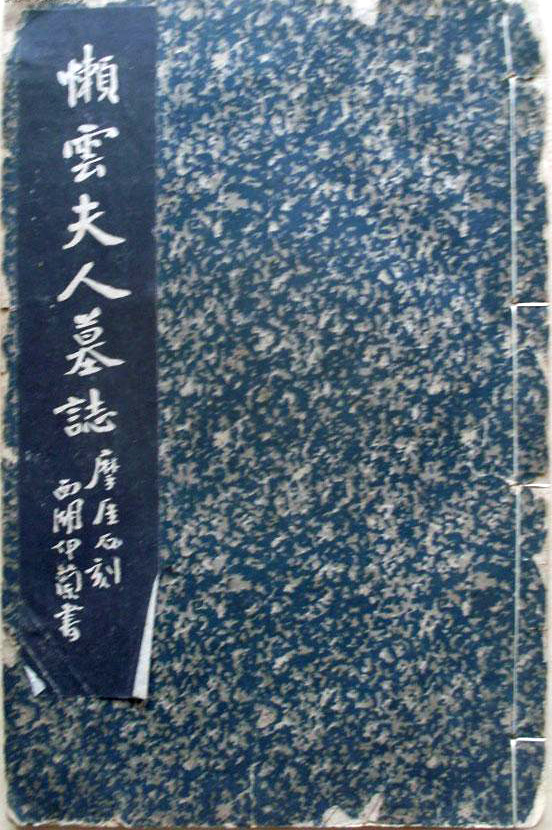 懶雲夫人墓誌
摩厓石刻
西湖伊蘭書